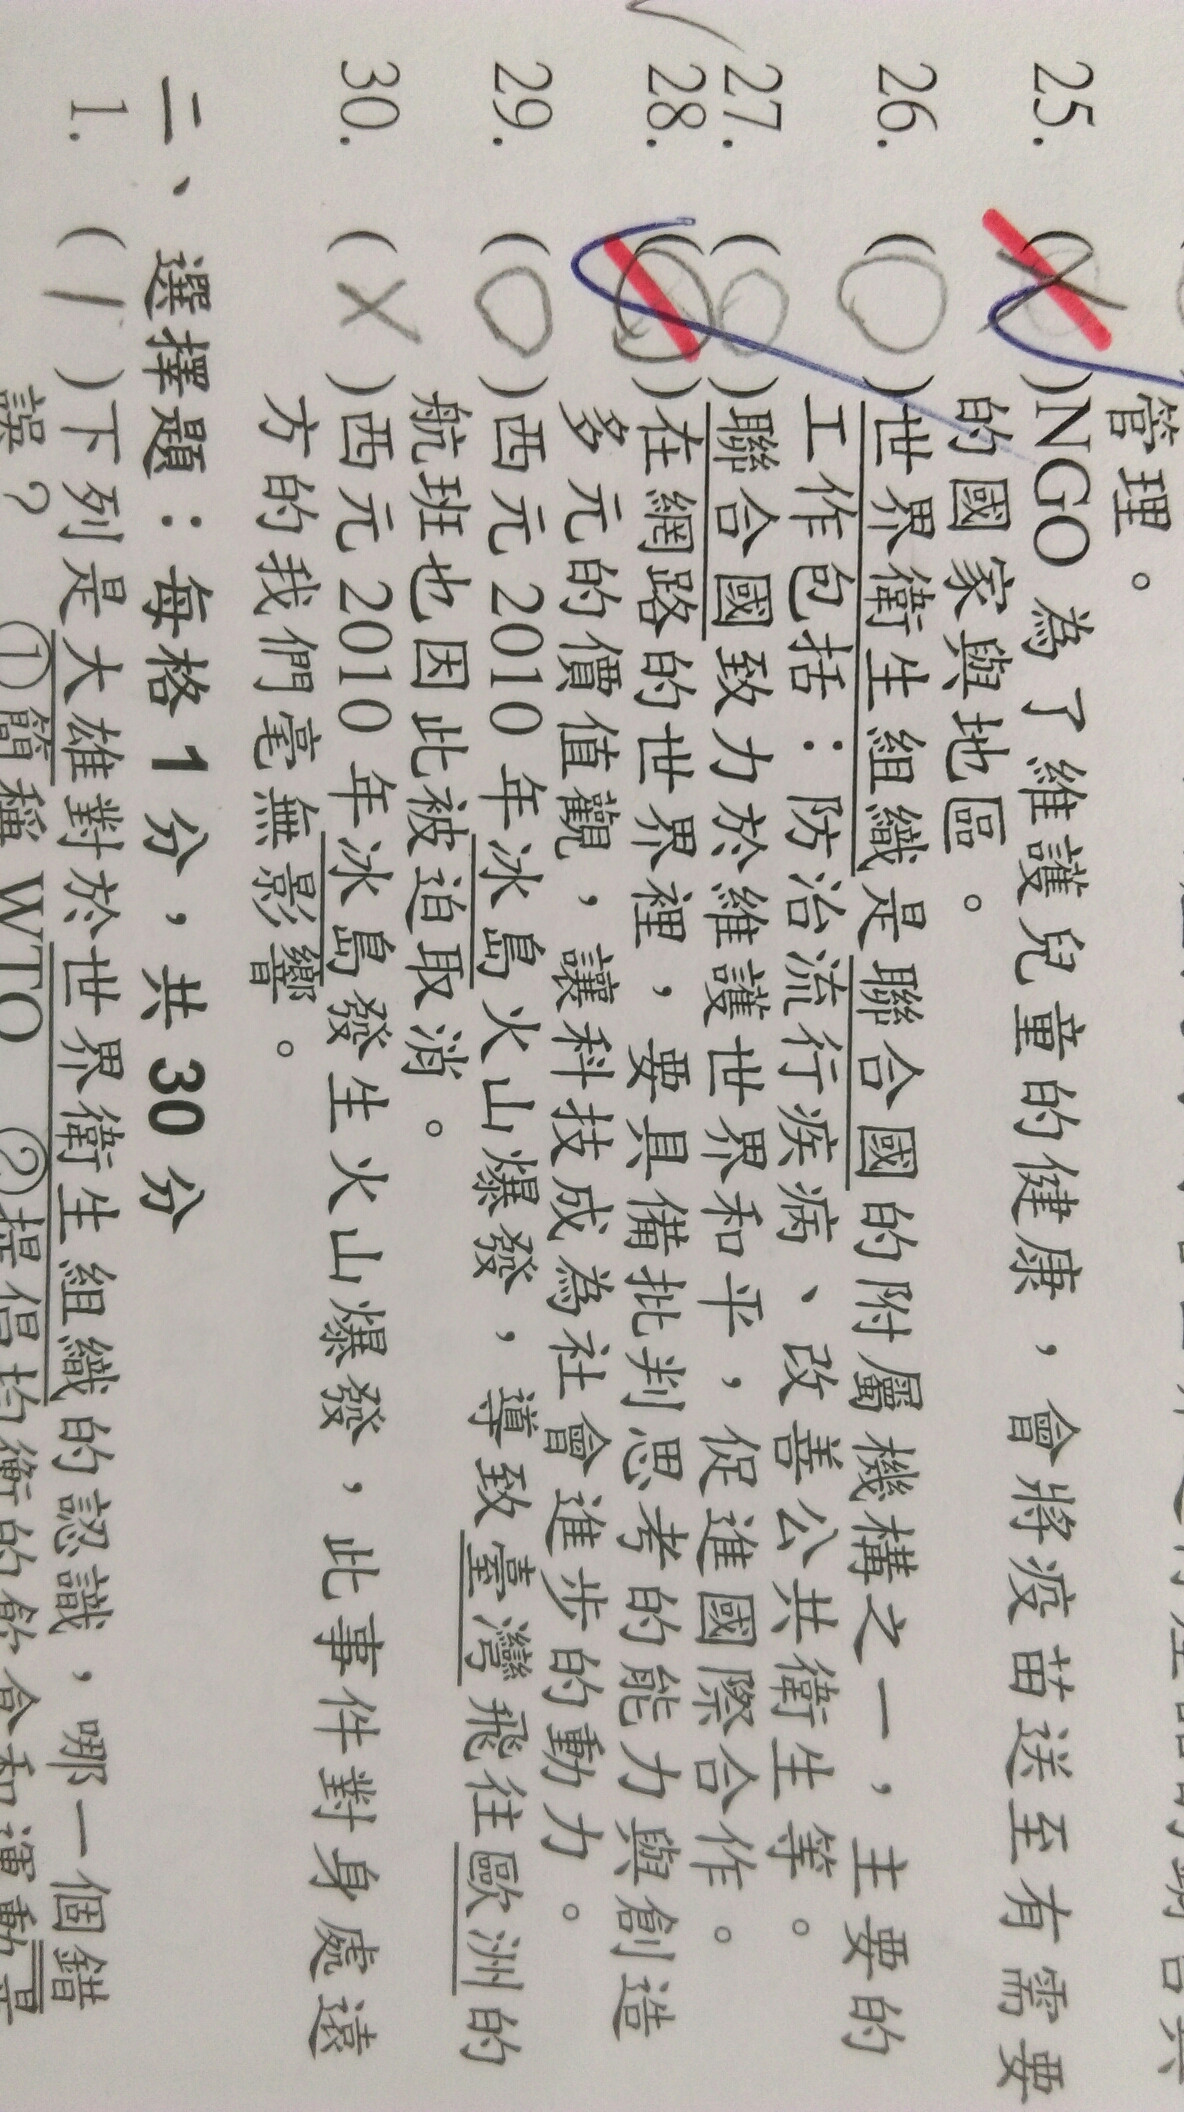 管理。
25. (X)NGO 為了維護兒童的健康，會將疫苗送至有需要
的國家與地區。
26. (○)世界衛生組織是聯合國的附屬機構之一，主要的
工作包括：防治流行疾病、改善公共衛生等。
27. (○)聯合國致力於維護世界和平，促進國際合作。
28. (○)在網路的世界裡，要具備批判思考的能力與創造
多元的價值觀，讓科技成為社會進步的動力。
29. (○)西元 2010 年冰島火山爆發，導致臺灣飛往歐洲的
航班也因此被迫取消。
30. (X)西元 2010 年冰島發生火山爆發，此事件對身處遠
方的我們毫無影響。
二、選擇題：每格 1 分，共 30 分
1. (1)下列是大雄對於世界衛生組織的認識，哪一個錯
誤？ ①簡稱 WTO ②提倡均衡的飲食和運動